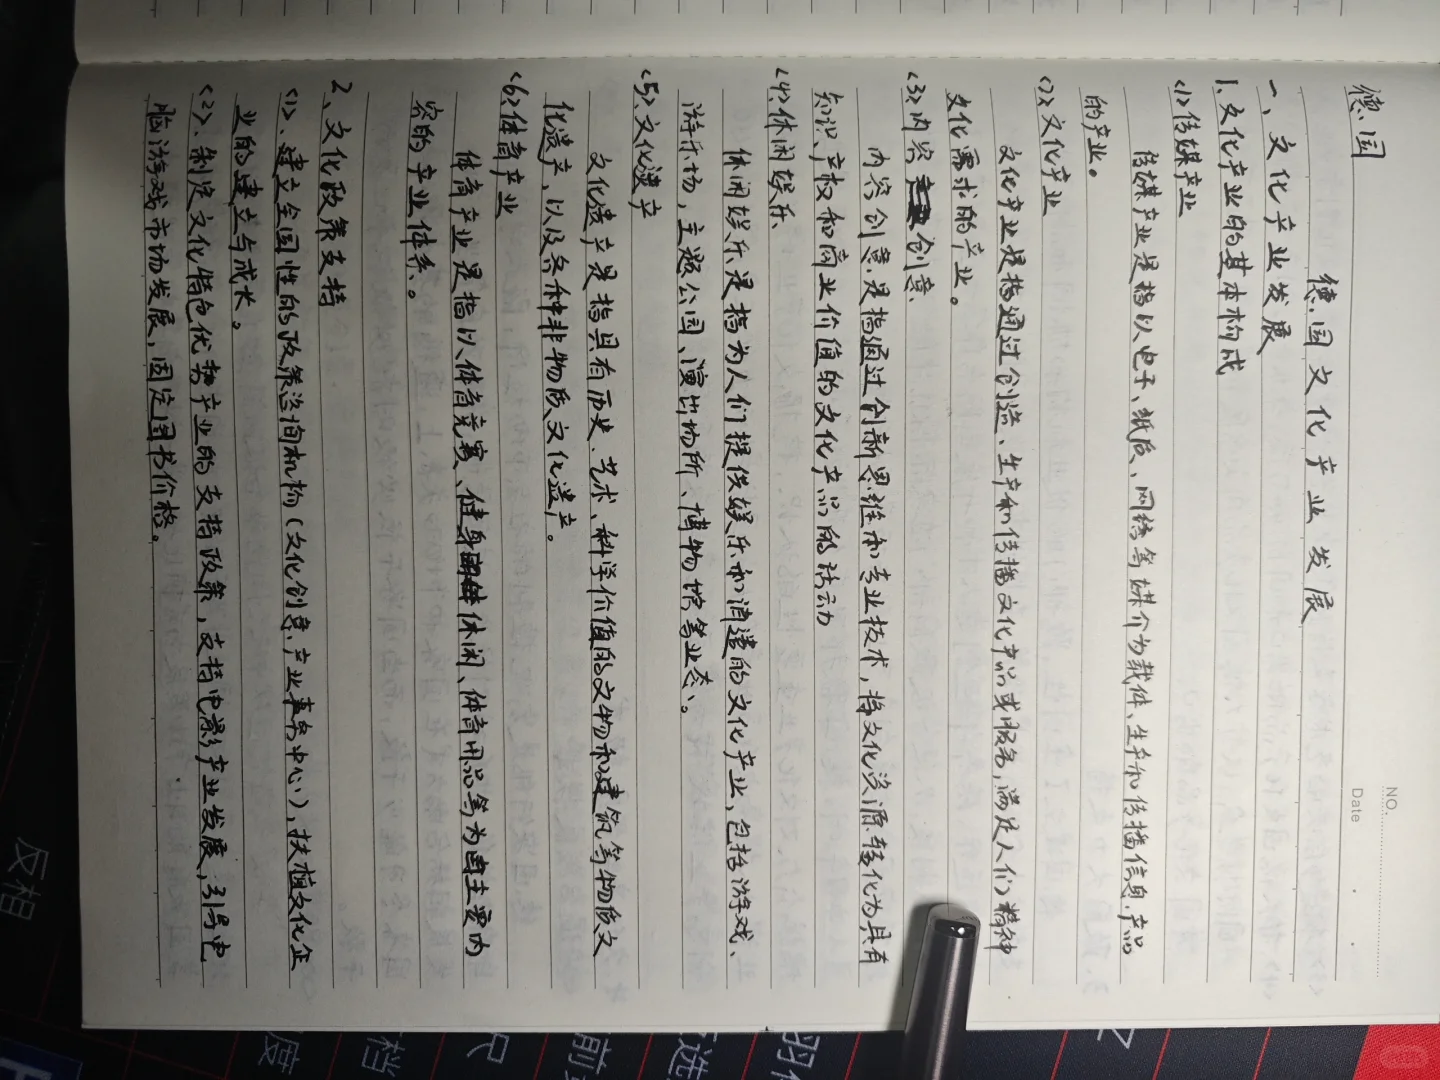 NO.
Date
德国
德国文化产业发展
一、文化产业发展
1、文化产业的基本构成
<1>传媒产业
传媒产业是指以电子、纸质、网络等媒介为载体、生产和传播信息产品
的产业。
<2>文化产业
文化产业是指通过创造、生产和传播文化产品或服务,满足人们精神
文化需求的产业。
<3>内容创意
内容创意是指通过创新思维和专业技术,将文化资源转化为具有
知识产权和商业价值的文化产品的活动
<4>休闲娱乐
休闲娱乐是指为人们提供娱乐和消遣的文化产业,包括游戏、
游乐场,主题公园、演出场所、博物馆等业态。
<5>文化遗产
文化遗产是指具有历史、艺术、科学价值的文物和建筑等物质文
化遗产、以及各种非物质文化遗产。
<6>体育产业
体育产业是指以体育竞赛、健身休闲、体育用品等为主要内
容的产业体系。
2、文化政策支持
<1>、建立全国性的政策咨询机构(文化创意产业事务中心),扶植文化企
业的建立与成长。
<2>、制定文化特色优势产业的支持政策,支持电影产业发展,引导电
脑游戏市场发展,固定图书价格。
反相
度
档
尺
前
选
羽化